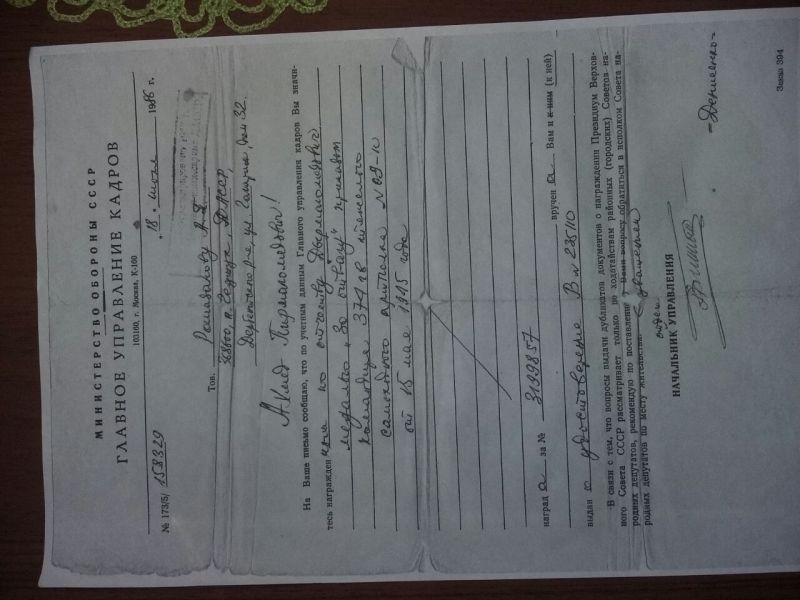 МИНИСТЕРСТВО ОБОРОНЫ СССР
ГЛАВНОЕ УПРАВЛЕНИЕ КАДРОВ
103160, г. Москва, К-160
№ 173/5/ 158329 "18" июля 1986 г.
Тов. Рамидахову А. П.
368600, п. Огни, ДАССР,
ул. Гагарина, дом 32.
На Ваше письмо сообщаю, что по учетным данным Главного управления кадров Вы значи-
тесь награжден по отчеству
медалью „За отвагу" приказом
командира 374 гв
самоходного артполка № 09-н
от 15 мая 1945 года
наград а за № 3199857 вручен а Вам и к ним (к ней)
выдан о удостоверение В № 235110
В связи с тем, что вопросы выдачи дубликатов документов о награждении Президиум Верхов-
ного Совета СССР рассматривает только по ходатайствам районных (городских) Советов на-
родных депутатов, рекомендую по поставленному Вами вопросу обратиться в исполком Совета на-
родных депутатов по месту жительства. С уважением
НАЧАЛЬНИК УПРАВЛЕНИЯ
Заказ 394